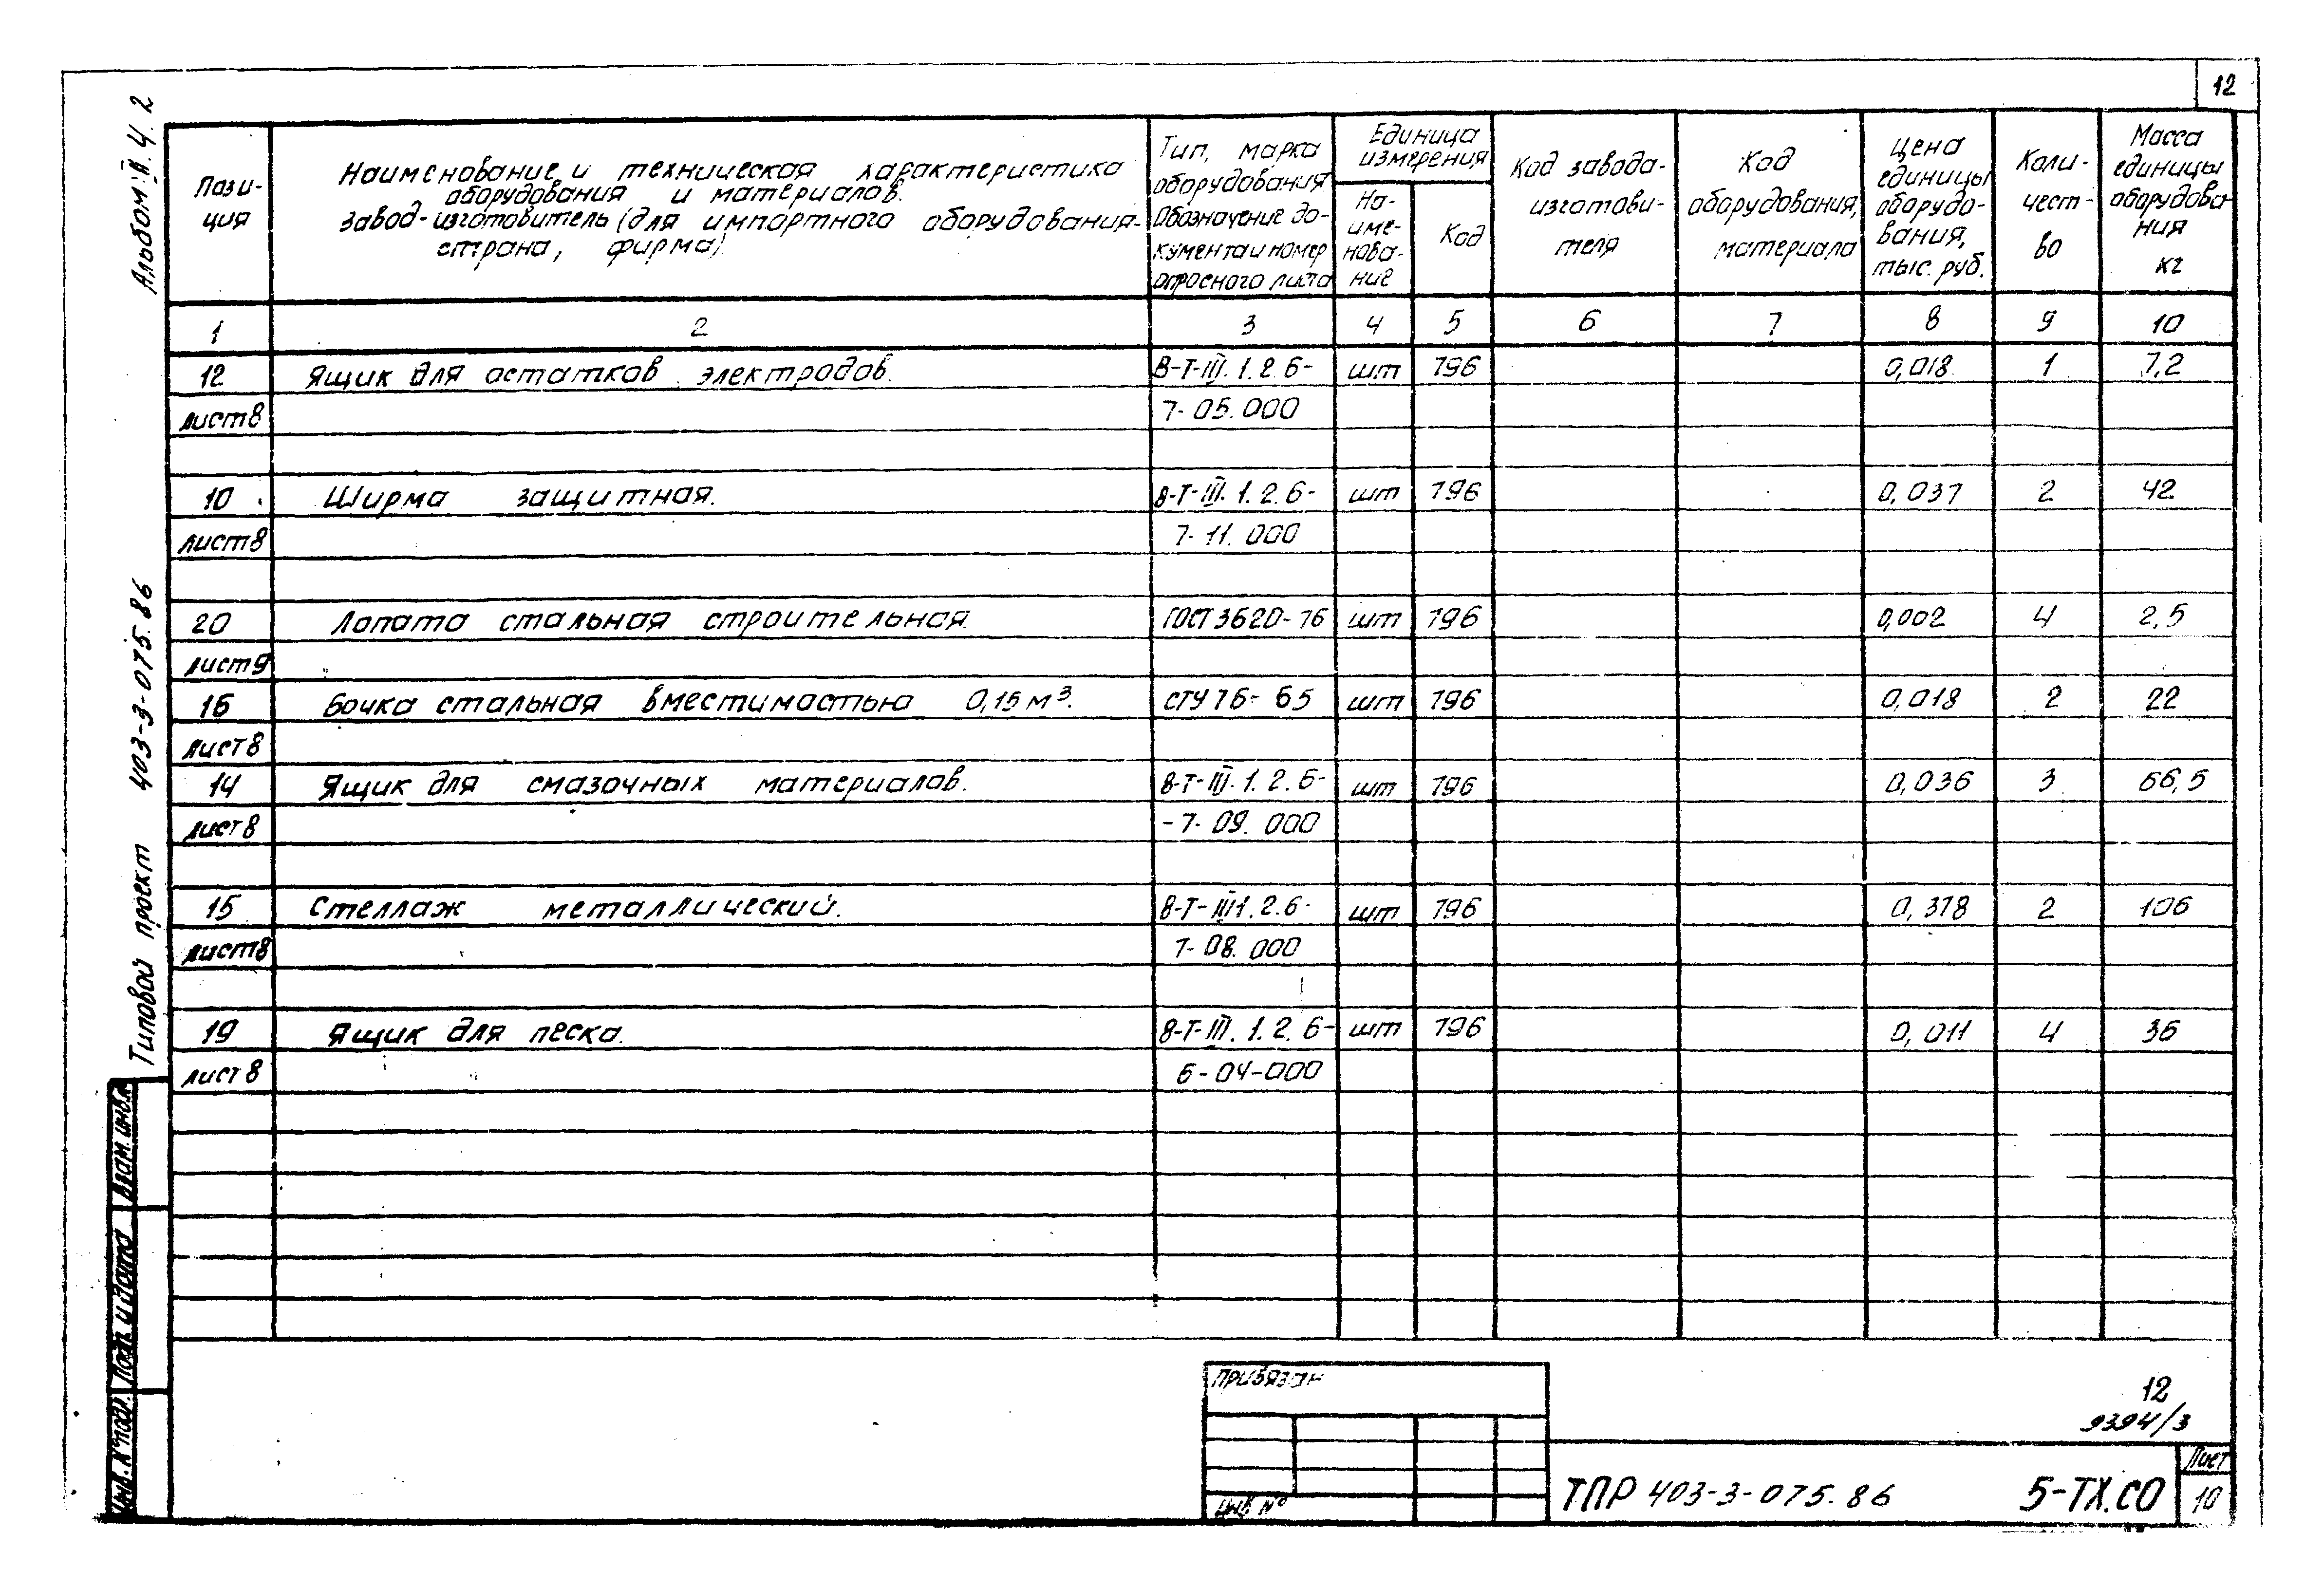 12
Альбом II ч. 2
Типовой проект 403-3-075.86
Пози-
ция
Наименование и техническая характеристика
оборудования и материалов.
Завод-изготовитель (для импортного оборудования-
страна, фирма)
Тип, марка
оборудования
Обозначение до-
кумента и номер
опросного листа
Единица
измерения
На-
име-
нова-
ние
Код
Код завода-
изготови-
теля
Код
оборудования,
материала
Цена
единицы
оборудо-
вания,
тыс. руб.
Коли-
чест-
во
Масса
единицы
оборудова-
ния
кг
1 2 3 4 5 6 7 8 9 10
12 Ящик для остатков электродов. 8-Т-III. 1. 2. 6- шт 796 0,018 1 7,2
лист 8 7-05.000
10 Ширма защитная. 8-Т-III. 1. 2. 6- шт 796 0,037 2 42
лист 8 7-11.000
20 Лопата стальная строительная. ГОСТ 3620-76 шт 796 0,002 4 2,5
лист 9
16 Бочка стальная вместимостью 0,15 м³. СТУ 76-65 шт 796 0,018 2 22
лист 8
14 Ящик для смазочных материалов. 8-Т-III. 1. 2. 6- шт 796 0,036 3 66,5
лист 8 -7-09.000
15 Стеллаж металлический. 8-Т-III 1. 2. 6- шт 796 0,378 2 106
лист 8 7-08.000
19 Ящик для песка. 8-Т-III. 1. 2. 6- шт 796 0,011 4 36
лист 8 6-04-000
Взам. инв.№
Подп. и дата
Инв. № подл.
Привязан
Инв №
12
9394/3
ТПР 403-3-075.86 5-ТХ.СО
Лист
10